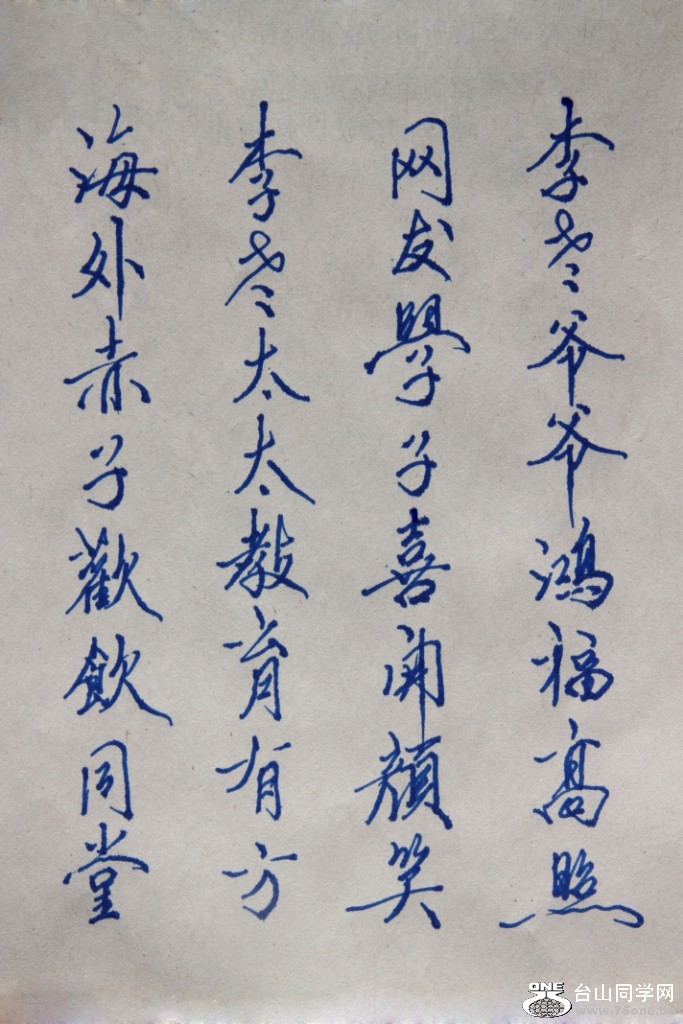 李老爷爷鸿福高照
网友學子喜開顔笑
李老太太教育有方
海外赤子歡飲同堂
ONE
台山同学网